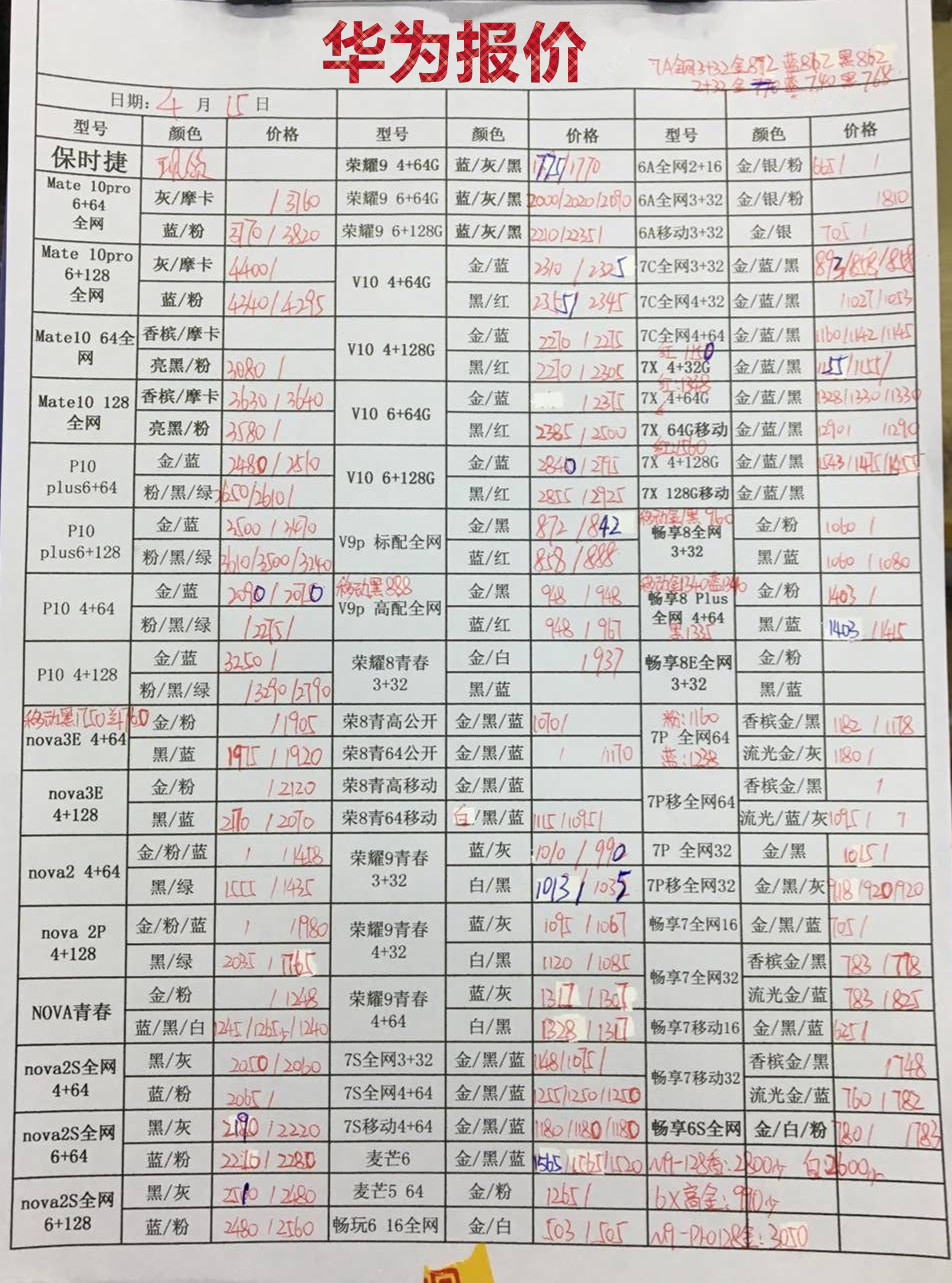 华为报价
7A全网3+32金892 蓝862 黑862
2+32 金770 蓝740 黑768
日期: 4 月 15 日
型号 颜色 价格 型号 颜色 价格 型号 颜色 价格
保时捷 荣耀9 4+64G 蓝/灰/黑 1775/1770 6A全网2+16 金/银/粉 665/ /
Mate 10pro 6+64 全网 灰/摩卡 /3760 荣耀9 6+64G 蓝/灰/黑 2000/2020/2090 6A全网3+32 金/银/粉 1810
蓝/粉 3770/3820 荣耀9 6+128G 蓝/灰/黑 2210/2235/ 6A移动3+32 金/银 705/
Mate 10pro 6+128 全网 灰/摩卡 4400/ V10 4+64G 金/蓝 2310/2325 7C全网3+32 金/蓝/黑 893/858/858
蓝/粉 4340/4295 黑/红 2355/2345 7C全网4+32 金/蓝/黑 /1027/1053
Mate10 64全网 香槟/摩卡 V10 4+128G 金/蓝 2270/2275 7C全网4+64 金/蓝/黑 1160/1142/1145
亮黑/粉 3080/ 黑/红 2270/2305 7X 4+32G 红:1150 金/蓝/黑 1155/1155/
Mate10 128全网 香槟/摩卡 3630/3640 V10 6+64G 金/蓝 /2375 7X 4+64G 红:1348 金/蓝/黑 1328/1330/1330
亮黑/粉 3580/ 黑/红 2385/2500 7X 64G移动 金/蓝/黑 1290/ /1290
P10 plus6+64 金/蓝 2480/2510 V10 6+128G 金/蓝 2840/2795 7X 4+128G 红:1560 金/蓝/黑 1543/1475/1455
粉/黑/绿 2650/2610/ 黑/红 2855/2925 7X 128G移动 金/蓝/黑
P10 plus6+128 金/蓝 3500/3470 V9p 标配全网 金/黑 872/842 移动金/黑960 畅享8全网 3+32 金/粉 1060/
粉/黑/绿 3610/3500/3240 蓝/红 858/888 黑/蓝 1060/1080
P10 4+64 金/蓝 2090/2070 移动黑888 V9p 高配全网 金/黑 948/948 移动金1340蓝1340 畅享8 Plus 全网 4+64 黑1335 金/粉 1403/
粉/黑/绿 /2275/ 蓝/红 948/967 黑/蓝 1403/1415
P10 4+128 金/蓝 3250/ 荣耀8青春 3+32 金/白 /937 畅享8E全网 3+32 金/粉
粉/黑/绿 /3290/2790 黑/蓝 黑/蓝
移动黑1750兰1760 nova3E 4+64 金/粉 /1905 荣8青高公开 金/黑/蓝 1070/ 粉:1160 7P 全网64 蓝:1238 香槟金/黑 1182/1178
黑/蓝 1975/1920 荣8青64公开 金/黑/蓝 / /1170 流光金/灰 1180/
nova3E 4+128 金/粉 /2120 荣8青高移动 金/黑/蓝 7P移全网64 香槟金/黑 /
黑/蓝 2170/2070 荣8青64移动 白/黑/蓝 1115/1095/ 流光/蓝/灰 1095/ 7
nova2 4+64 金/粉/蓝 / /1458 荣耀9青春 3+32 蓝/灰 1010/990 7P 全网32 金/黑 1015/
黑/绿 1555/1435 白/黑 1013/1035 7P移全网32 金/黑/灰 918/920/920
nova 2P 4+128 金/粉/蓝 / /1980 荣耀9青春 4+32 蓝/灰 1095/1067 畅享7全网16 金/黑/蓝 705/
黑/绿 2035/1765 白/黑 1120/1085 畅享7全网32 香槟金/黑 783/778
NOVA青春 金/粉 /1248 荣耀9青春 4+64 蓝/灰 1317/1307 流光金/蓝 783/825
蓝/黑/白 1245/1265/1240 白/黑 1328/1317 畅享7移动16 金/黑/蓝 625/
nova2S全网 4+64 黑/灰 2050/2060 7S全网3+32 金/黑/蓝 1148/1075/ 畅享7移动32 香槟金/黑 /748
蓝/粉 2065/ 7S全网4+64 金/黑/蓝 1255/1250/1250 流光金/蓝 760/782
nova2S全网 6+64 黑/灰 2190/2220 7S移动4+64 金/黑/蓝 1180/1180/1180 畅享6S全网 金/白/粉 780/ /783
蓝/粉 2210/2280 麦芒6 金/黑/蓝 1565/1565/1520 N9-128香:2800 白2600
nova2S全网 6+128 黑/灰 2510/2480 麦芒5 64 金/粉 1265/ 6X高金:990
蓝/粉 2480/2560 畅玩6 16全网 金/白 503/505 N9-Pro128金:3050